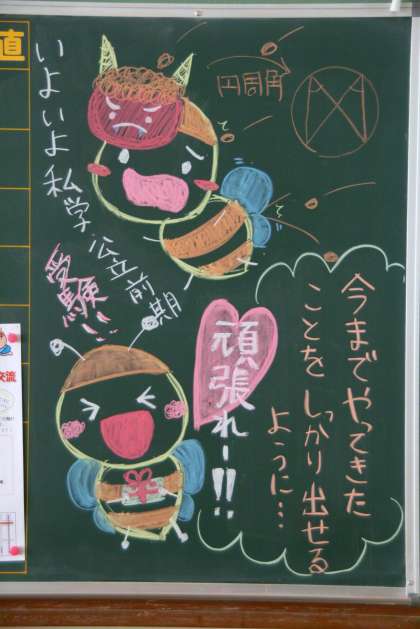 直
いよいよ私学、公立前期
受験!!
円周角
て
て
頑張れー!!
今までやってきた
ことをしっかり出せる
ように…
交流